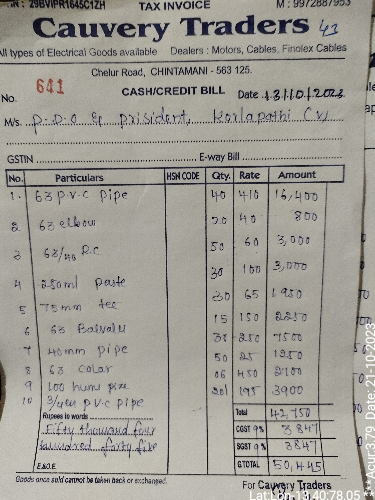 IN : 29BVIPR1645C1ZH TAX INVOICE M : 9972887953
Cauvery Traders 43
All types of Electrical Goods available Dealers : Motors, Cables, Finolex Cables
Chelur Road, CHINTAMANI - 563 125.
No. 641 CASH/CREDIT BILL Date 13/10/2023
M/s. P.D.O & prisident, Korlapathi (V)
GSTIN E-way Bill
No. Particulars HSN CODE Qty. Rate Amount
1. 63 p.v.c pipe 40 410 16,400
2 63 elbow 20 40 800
3 63/40 R.C 50 60 3,000
4 250ml paste 30 100 3,000
5 75mm tee 30 65 1950
6 63 15 150 2250
7 40mm pipe 30 250 7500
8 63 colar 50 25 1250
9 100 06 450 2700
10 3/4 p.v.c pipe 20 195 3900
Rupees in words Total 42,750
Fifty thousand four CGST 9% 3847
hundred forty five SGST 9% 3847
E.&O.E. G.TOTAL 50,445
Goods once sold cannot be taken back or exchanged. For Cauvery Traders